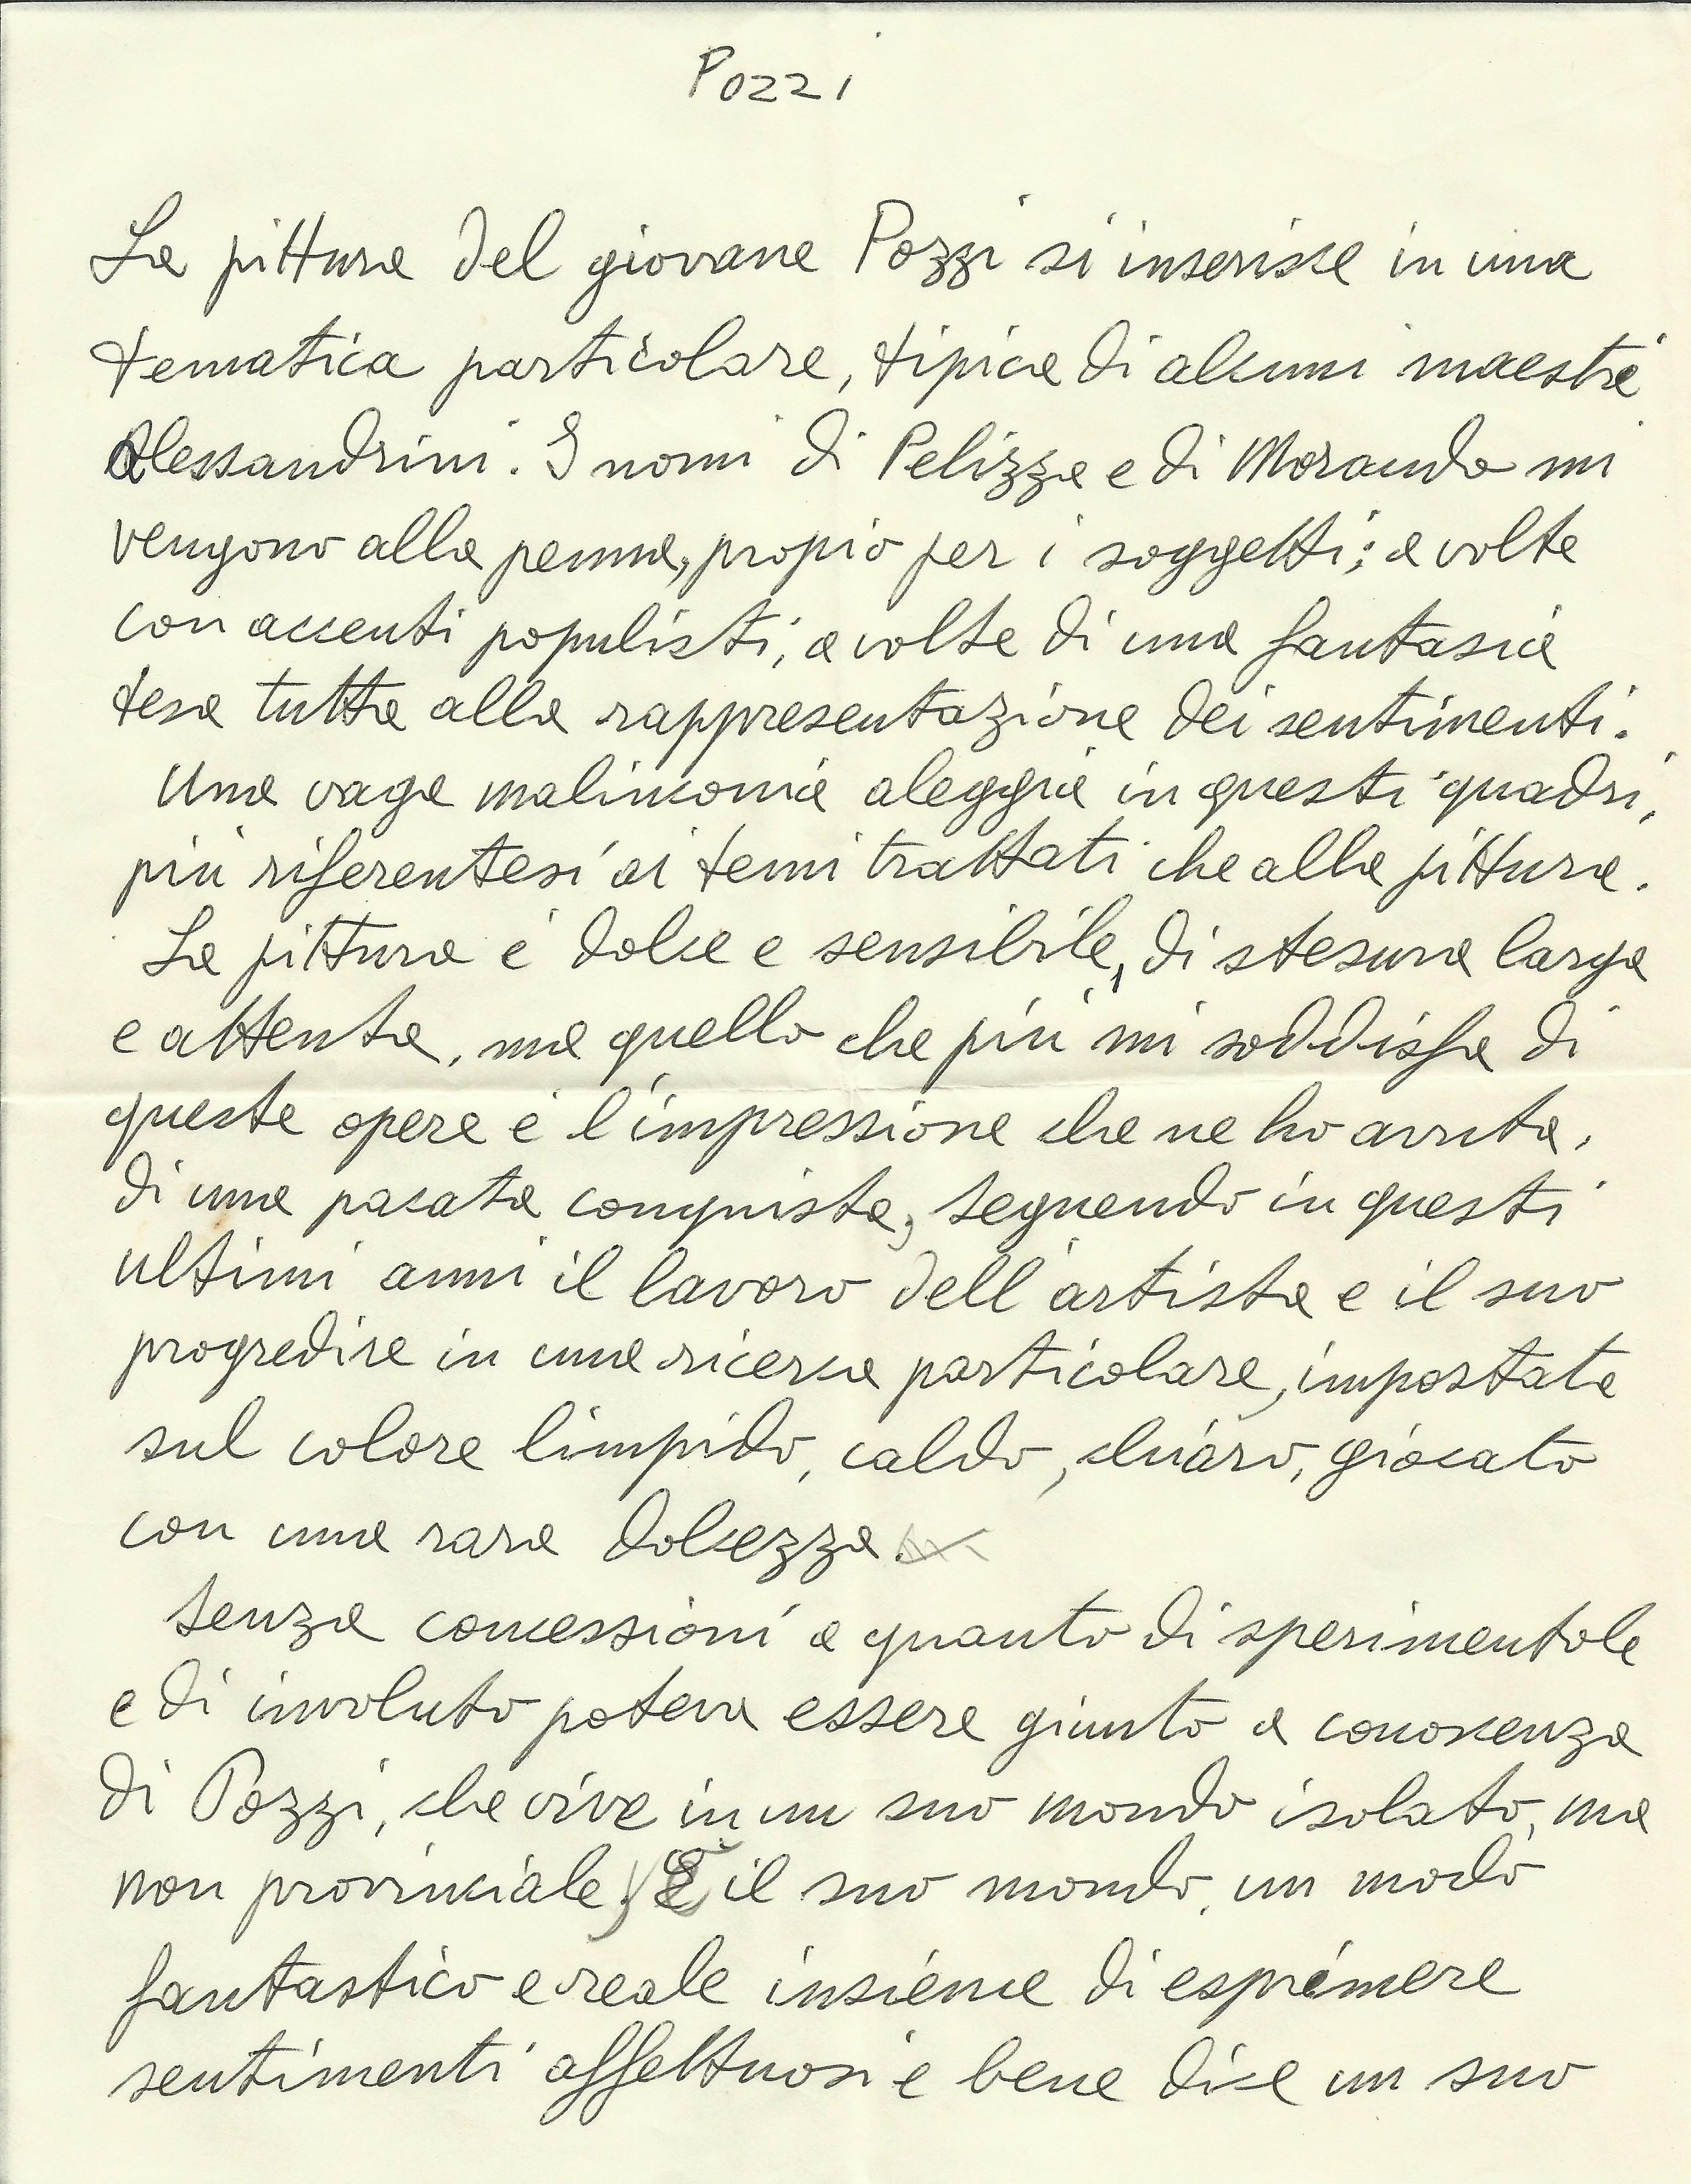 Pozzi
La pittura del giovane Pozzi si inserisce in una
tematica particolare, tipica di alcuni maestri
alessandrini. I nomi di Pelizza e di Morando mi
vengono alla penna, propio per i soggetti; a volte
con accenti populisti, a volte di una fantasia
tesa tutta alla rappresentazione dei sentimenti.
Una vaga malinconia aleggia in questi quadri,
più riferentesi ai temi trattati che alla pittura.
La pittura è dolce e sensibile, di stesura larga
e attenta, ma quello che più mi soddisfa di
queste opere è l'impressione che ne ho avuta,
di una pacata conquista, seguendo in questi
ultimi anni il lavoro dell'artista e il suo
progredire in una ricerca particolare, impostata
sul colore limpido, caldo, chiaro, giocato
con una rara dolcezza.
Senza concessioni a quanto di sperimentale
e di involuto poteva essere giunto a conoscenza
di Pozzi, che vive in un suo mondo isolato, ma
non provinciale. È il suo mondo, un modo
fantastico e reale insieme di esprimere
sentimenti affettuosi e bene dice un suo